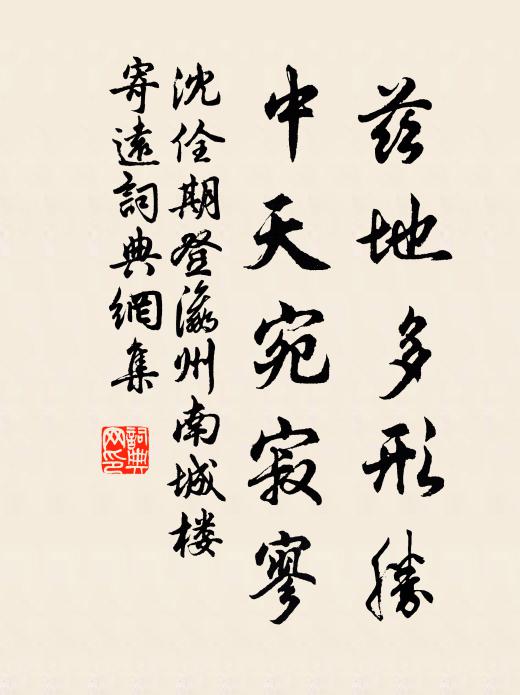 茲地多形勝
中天宛寂寥
沈佺期登瀛州南城楼
寄遠詞典網集
詞典
网印